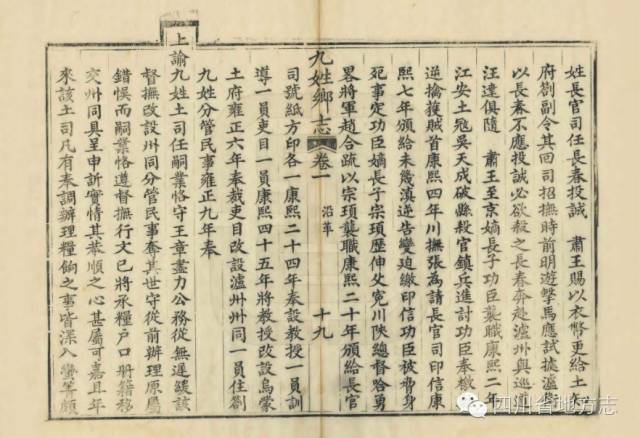 姓長官司任長春投誠　肅王賜以衣幣更給土知
府劄副令其回司招撫時前明遊擊馬應試據瀘州
以長春不應投誠必欲殺之長春奔赴瀘州與巡道
汪達俱隨　肅王至京嫡長子功臣襲職康熙二年
江安土寇吳天成破縣殺官鎮兵進討功臣奉檄
逆擒獲賊首康熙四年川撫張為請長官司印信康
熙七年頒給未幾滇逆告變迫繳印信功臣被脅身
死事定功臣嫡長子宗頊歷伸父冤川陝總督哈勇
畧將軍趙合疏以宗頊襲職康熙二十年頒給長官
九姓鄉志　卷一　沿革　十九
司號紙方印各一康熙二十四年奉設教授一員訓
導一員吏目一員康熙四十五年將教授改設烏蒙
土府雍正六年奉裁吏目改設瀘州州同一員住劄
九姓分管民事雍正九年奉
上諭九姓土司任嗣業恪守王章盡力公務從無遲緩該
督撫改設州同分管民事奪其世守從前辦理原屬
錯悞而嗣業恪遵督撫行文已將承糧戶口冊籍移
交州同具呈申訴實情其恭順之心甚屬可嘉且年
來該土司凡有奉調辦理糧餉之事皆深入蠻箐顏
四川省地方志